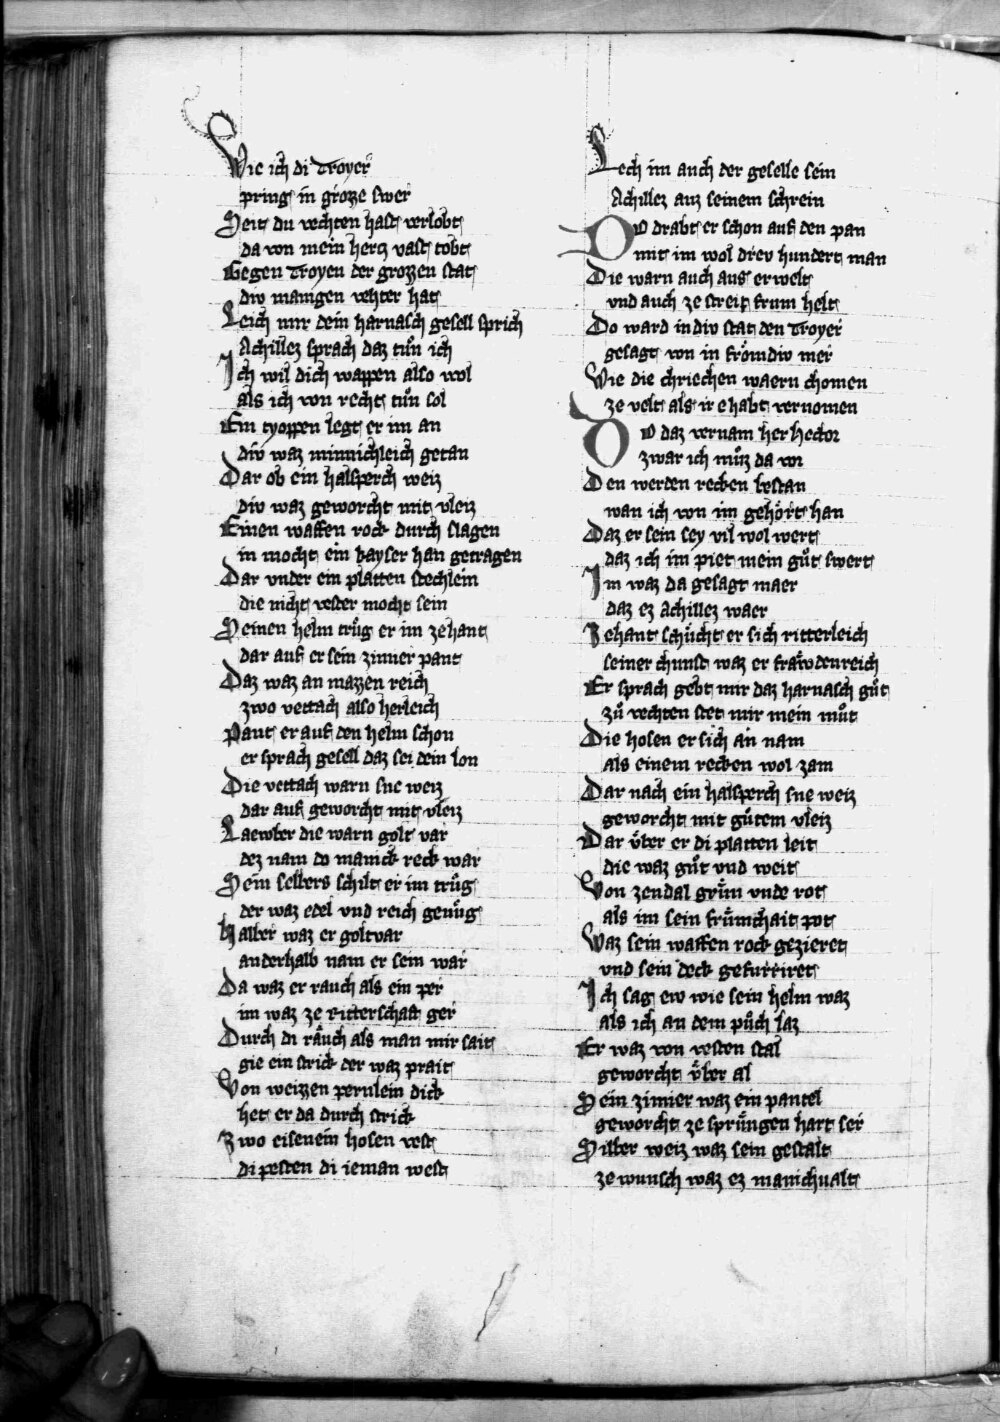 Wie ich di Troyer
pring in grozze swer
Seit du vechten hast verlobt
da von mein hertz vast tobt
Gegen Troyen der grozzen stat
div manigen vehter hat
Leich mir dein harnasch gesell sprich
Achillez sprach daz tuͦn ich
Ich wil dich wappen also wol
als ich von recht tuͦn sol
Ein tyoppen legt er im an
div waz minnichleich getan
Dar ob ein halsperch weiz
div waz geworcht mit vleiz
Einen waffen rock durch slagen
in mocht ein kayser han getragen
Dar vnder ein platten stechlein
die nicht vester mocht sein
Seinen helm truͦg er im ze hant
dar auf er sein zimier pant
Daz waz an mazzen reich
zwo vettach also herleich
Pant er auf den helm schon
er sprach gesell daz sei dein lon
Die vettach warn sne weiz
dar auf geworcht mit vleiz
Laewber die warn golt var
dez nam do manick reck war
Sein sellers schilt er im truͦg
der waz edel vnd reich genuͦg
Halber waz er goltvar
anderhalb nam er sein war
Da waz er rauch als ein per
im waz ze ritterschaft ger
Durch di raͤuch als man mir sait
gie ein strick der waz prait
Von weizzen perulein dick
het er da durch strick
Zwo eisenein hosen vest
di pesten di ieman west
Lech im auch der geselle sein
Achillez auz seinem schrein
Do drabt er schon auf den pan
mit im wol drev hundert man
Die warn auch aus erwelt
vnd auch ze streit frum helt
Do ward in div stat den Troyer
gesagt von in froͤmdiv mer
Wie die chriechen waern chomen
ze velt als ir e habt vernomen
Do daz vernam her Hector
zwar ich muͦz da vor
Den werden recken bestan
wan ich von im gehoͤrt han
Daz er sein sey vil wol wert
daz ich im piet mein guͦt swert
Im waz da gesagt maer
daz ez Achillez waer
Zehant schuͤcht er sich ritterleich
seiner chunst waz er fraͤwdenreich
Er sprach gebt mir daz harnasch guͦt
zuͦ vechten stet mir mein muͦt
Die hosen er sich an nam
als einem recken wol zam
Dar nach ein halsperch sne weiz
geworcht mit guͦtem vleiz
Dar vͤber er di platten leit
die waz guͦt vnd weit
Von zendal gruͤn vnde rot
als im sein fruͤmchait pot
Waz sein waffen rock gezieret
vnd sein deck gefurriret
Ich sag ew wie sein helm waz
als ich an dem puͦch laz
Er waz von vesten stal
geworcht vͤber al
Sein zimier waz ein pantel
geworcht ze spruͤngen hart ser
Silber weiz waz sein gestalt
ze wunsch waz ez manichualt